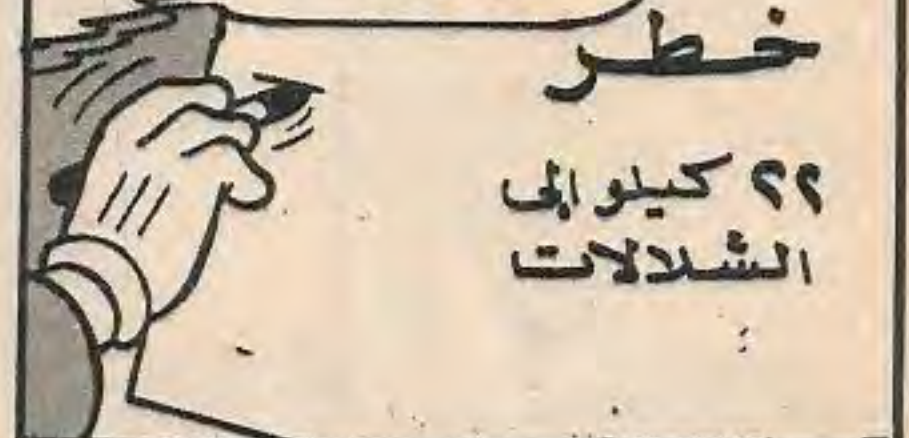 خطر
٢٢ كيلو إلى
الشلالات